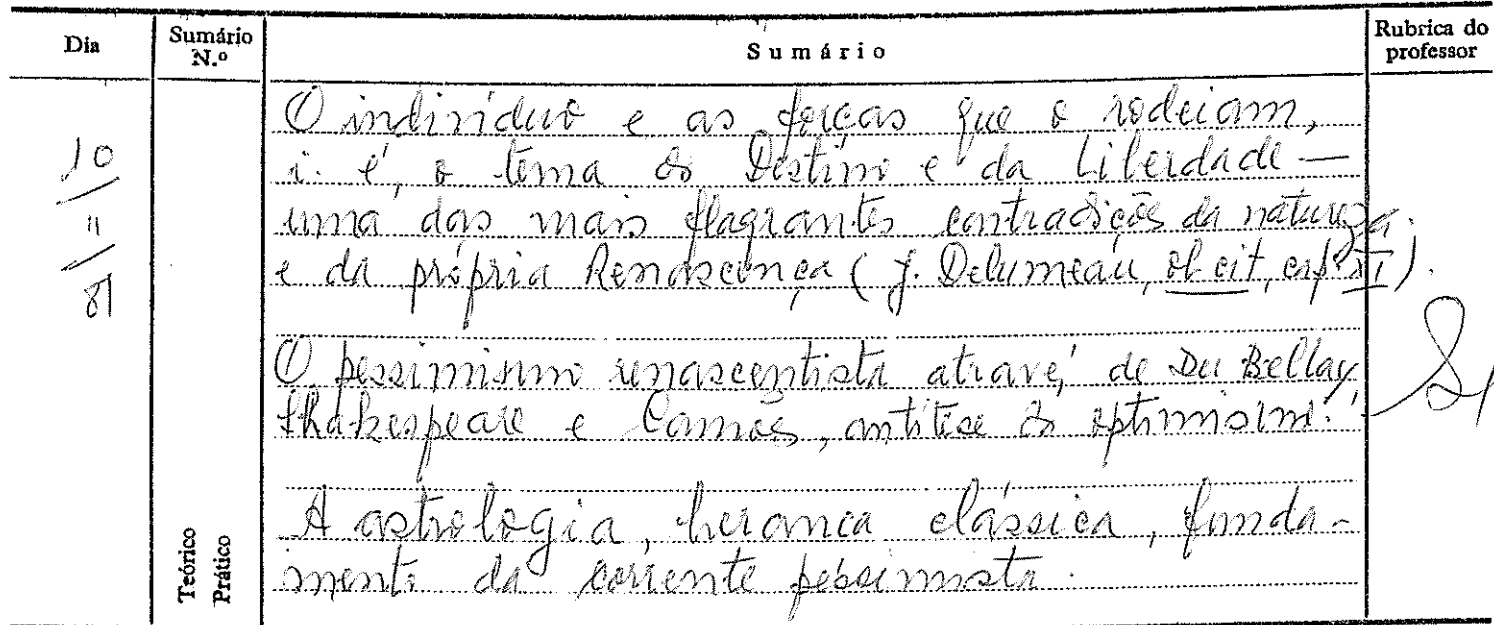 Dia
Sumário N.º
Sumário
Rubrica do professor
10
11
81
O indivíduo e as forças que o rodeiam,
i. é, o tema do Destino e da Liberdade —
uma das mais flagrantes contradições da natureza
e da própria Renascença (J. Delumeau, ob cit, cap. XI).
O pessimismo renascentista através de Du Bellay
Shakespeare e Camões, antítese do optimismo.
A astrologia, herança clássica, funda-
mento da corrente pessimista.
Teórico
Prático